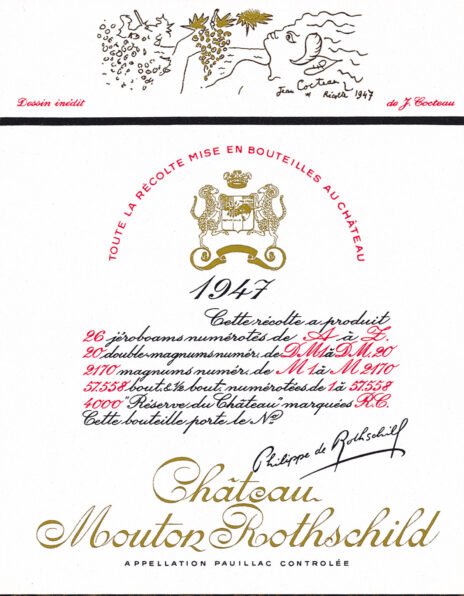 Jean Cocteau
* Récolte 1947
Dessin inédit
de J. Cocteau
TOUTE LA RÉCOLTE MISE EN BOUTEILLES AU CHÂTEAU
1947
Cette récolte a produit
26 jéroboams numérotés de A à Z.
20 double-magnums numér. de DM1 à DM.20
2170 magnums numér. de M1 à M2170
57.558 bout. & ½ bout. numérotées de 1 à 57558
4000 "Réserve du Château" marquées R.C.
Cette bouteille porte le No
Philippe de Rothschild
Château
Mouton Rothschild
APPELLATION PAUILLAC CONTROLÉE